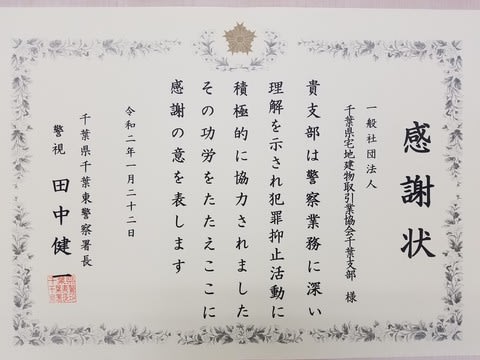 感謝状
一般社団法人
千葉県宅地建物取引業協会千葉支部 様
貴支部は警察業務に深い
理解を示され犯罪抑止活動に
積極的に協力されました
その功労をたたえここに
感謝の意を表します
令和二年一月二十二日
千葉県千葉東警察署長
警視 田中健一